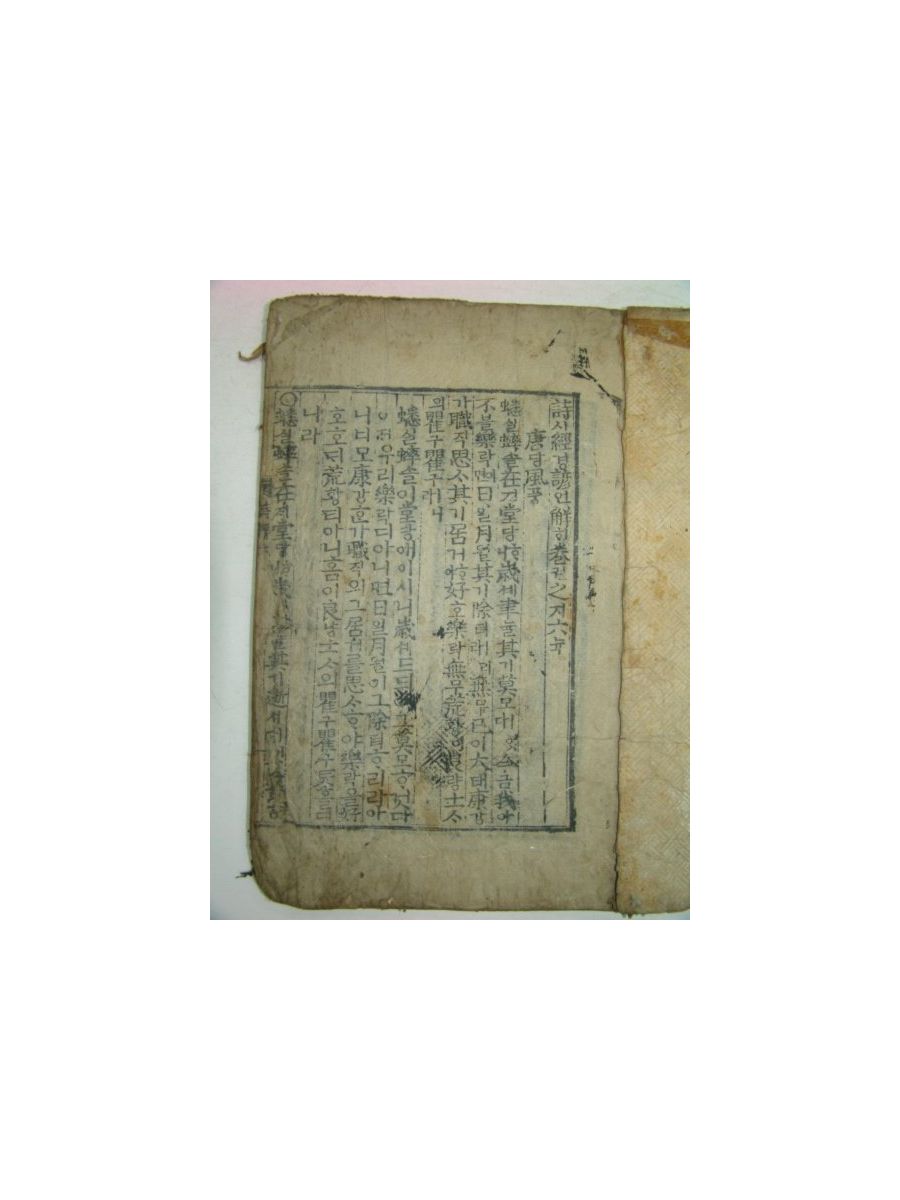 詩시經경諺언解ᄒᆡ卷권之지六뉵
唐당風풍
蟋실蟀솔在ᄌᆡ堂당ᄒᆞ니歲셰聿율其기莫모ㅣ로다今금我아
不블樂락이면日일月월其기除뎨리라無무已이大태康강가
職직思ᄉᆞ其기居거ᄒᆞ야好호樂락無무荒황이良량士ᄉᆞ
의瞿구瞿구ㅣ니라
蟋실蟀솔이堂당애이시니歲셰드듸여그莫모ᄒᆞ엿다
이제우리樂락디아니면日일月월이그除뎨ᄒᆞ리라아
니너모康강ᄒᆞᆫ가職직의그居거를思ᄉᆞᄒᆞ야樂락을好
호호ᄃᆡ荒황티아니홈이良냥士ᄉᆞ의瞿구瞿구
니라
○蟋실蟀솔在ᄌᆡ堂당歲其기逝셔